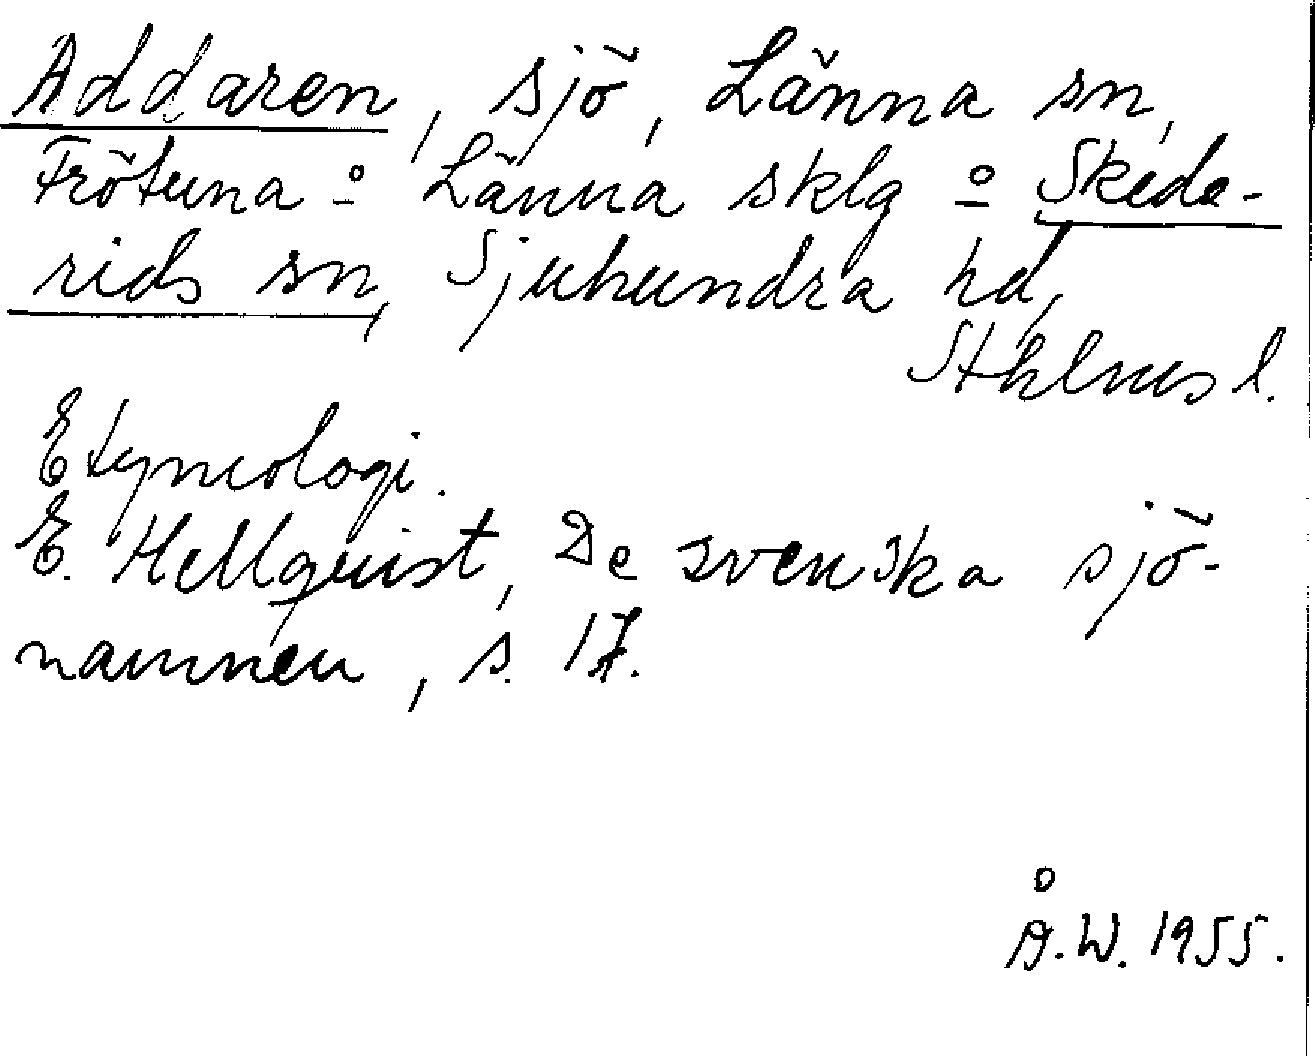 Addaren, sjö, Länna sn,
Frötuna o Länna sklg o Skede-
rids sn, Sjuhundra hd,
Sthlms l.
Etymologi.
E. Hellquist, De svenska sjö-
namnen, s. 17.
Å.W. 1955.